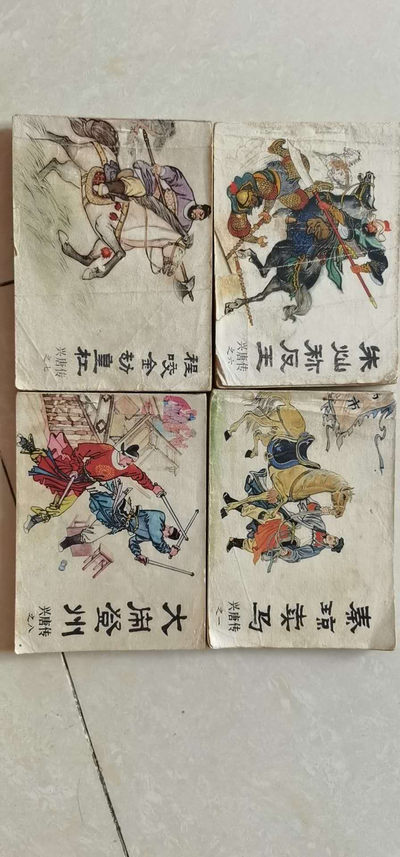 程咬金劫皇杠
兴唐传
之七
朱灿称反王
兴唐传
之六
大闹登州
兴唐传
之八
秦琼卖马
兴唐传
之一